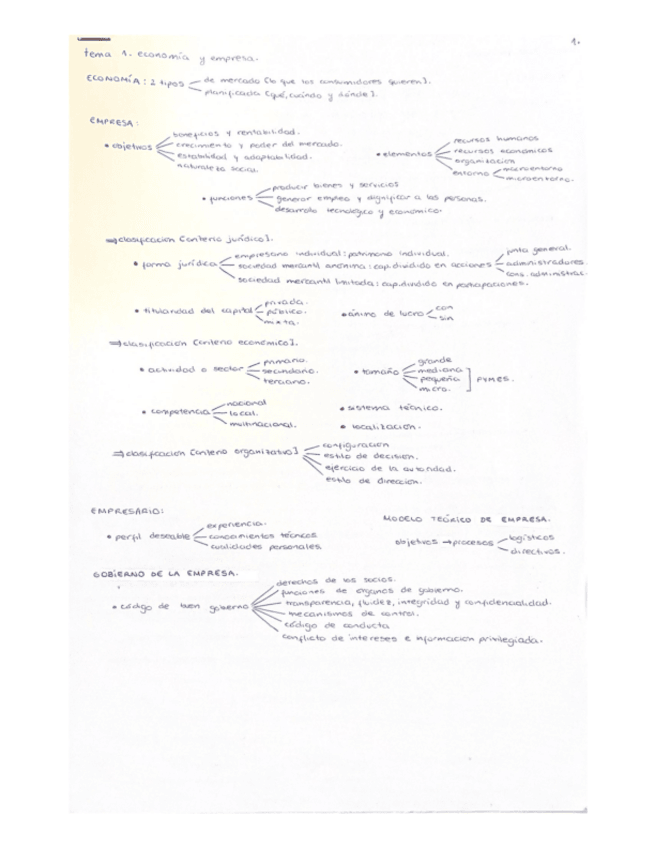 1.
tema 1. economía y empresa.
ECONOMÍA: 2 tipos
de mercado [lo que los consumidores quieren].
planificada [qué, cuándo y dónde].
EMPRESA:
• objetivos
beneficios y rentabilidad.
crecimiento y poder del mercado.
estabilidad y adaptabilidad.
naturaleza social.
• elementos
recursos humanos
recursos económicos
organización
entorno
microentorno.
• funciones
producir bienes y servicios
generar empleo y dignificar a las personas.
desarrollo tecnológico y económico.
⇒ clasificación [criterio jurídico].
• forma jurídica
empresario individual: patrimonio individual.
sociedad mercantil anónima: cap. dividido en acciones
junta general.
administradores.
cons. administrac.
sociedad mercantil limitada: cap. dividido en participaciones.
• titularidad del capital
privada.
público.
mixta.
• ánimo de lucro
con
sin
⇒ clasificación [criterio económico].
• actividad o sector
primario.
secundario.
terciario.
• tamaño
grande
mediana
pequeña
micro.
PYMES.
• competencia
nacional
local.
multinacional.
• sistema técnico.
• localización.
⇒ clasificación [criterio organizativo]
configuración
estilo de decisión.
ejercicio de la autoridad.
estilo de dirección.
EMPRESARIO:
• perfil deseable
experiencia.
conocimientos técnicos
cualidades personales.
MODELO TEÓRICO DE EMPRESA.
objetivos → procesos
logísticos
directivos.
GOBIERNO DE LA EMPRESA.
• código de buen gobierno
derechos de los socios.
funciones de órganos de gobierno.
transparencia, fluidez, integridad y confidencialidad.
mecanismos de control.
código de conducta
conflicto de intereses e información privilegiada.